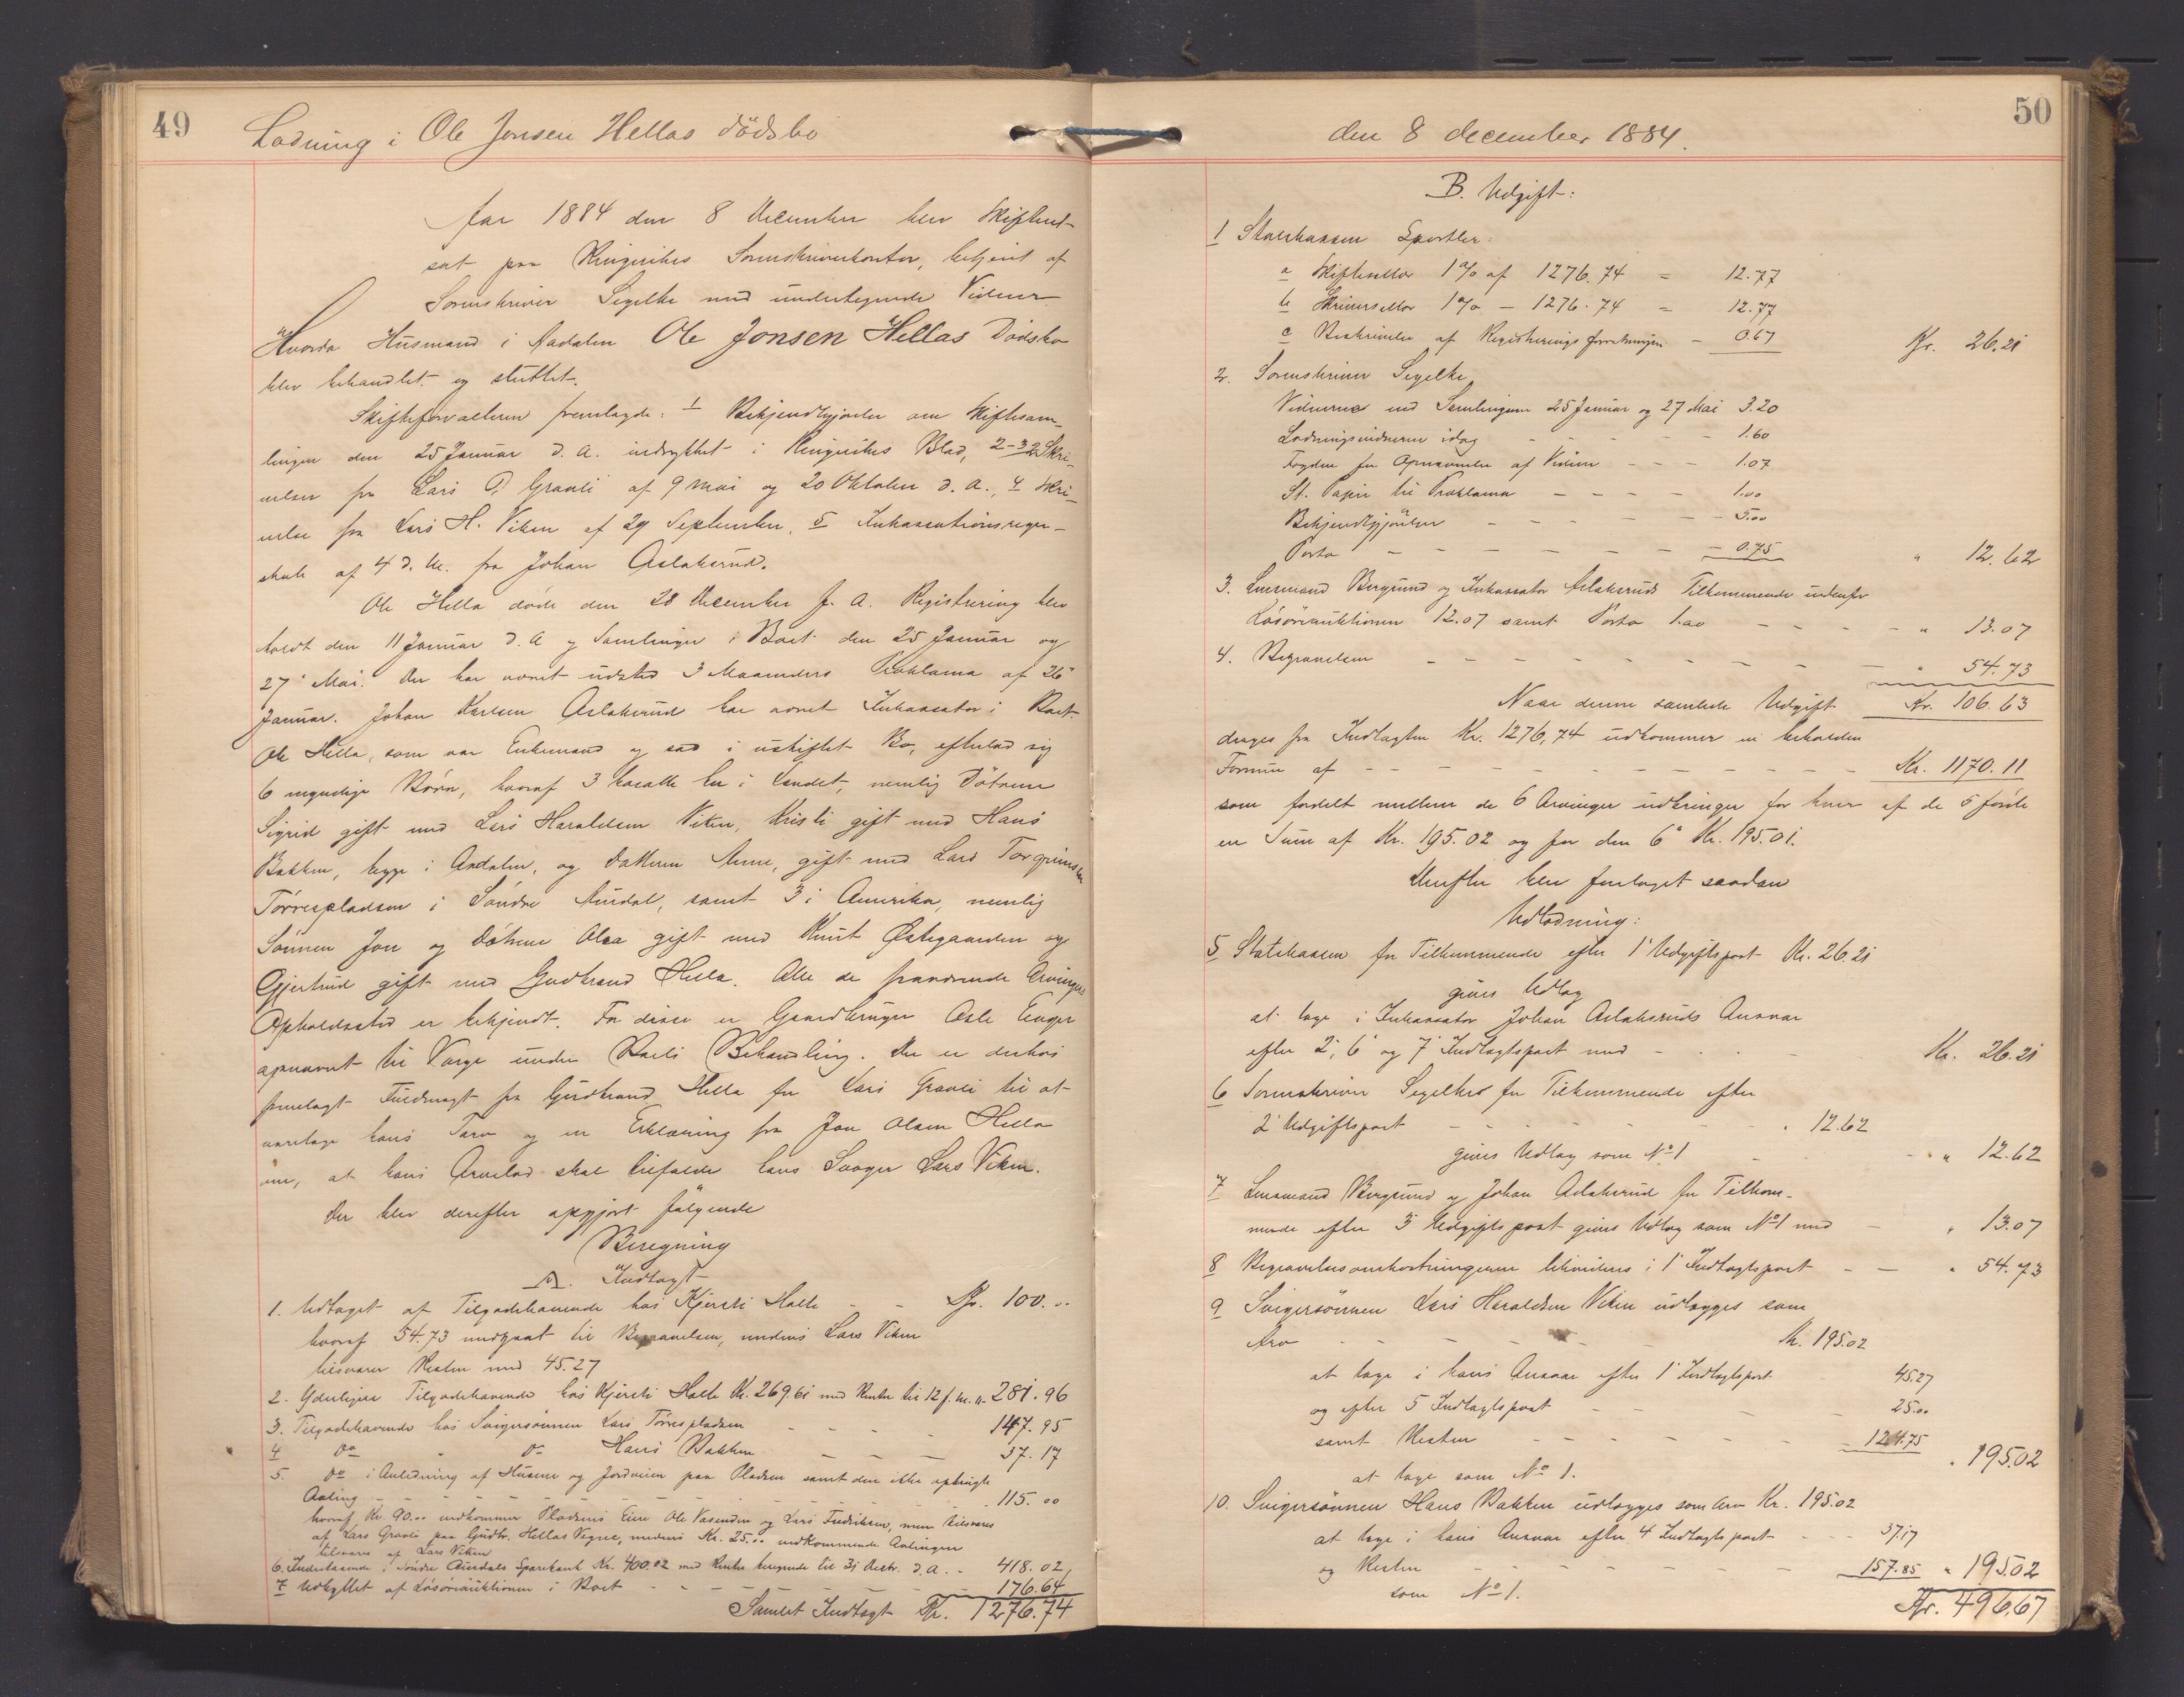 49
Lodning i Ole Jonsen Hellas dödsbo
Aar 1884 den 8 December blev Skifteret
sat paa Ringerikes Sorenskriverkontor, betjent af
Sorenskriver Segelke med undertegnede Vidner
Hvorda Husmand i Aadalen Ole Jonsen Hellas Dödsbo
blev behandlet og sluttet.
Skifteforvalteren fremlagde: 1 Bekjendtgjörelse om Skiftesam-
lingen den 25 Januar d. A. indrykket i Ringerikes Blad, 2-3 2 Skri-
velser fra Lars O. Graveli af 9 mai og 20 Oktober d. A., 4 Skri-
velse fra Lars H. Viken af 29 September, 5 Inkassationsregn-
skab af 4 d. M. fra Johan Aslaksrud.
Ole Hella döde den 28 December f. A. Registrering blev
holdt den 11 Januar d. A og Samlinger i Boet den 25 Januar og
27 Mai. Der har været udsted 3 Maaneders Proklama af 26
Januar. Johan Karlsen Aslaksrud har været Inkassator i Boet.
Ole Hella, som var Enkemand og sad i uskiftet Bo, efterlod sig
6 myndige Börn, hvoraf 3 her i Landet, nemlig Dötrene
Sigrid gift med Lars Haraldsen Viken, Kristi gift med Hans
Bakken, begge i Aadalen, og Datteren Anne, gift med Lars Torgrimsen
Törrespladsen i Söndre Aurdal, samt 3 i Amerika, nemlig
Sönnen Jon og Dötrene Olea gift med Knut Østegaarden og
Gjertrud gift med Gudbrand Hella. Alle de fraværende Arvinges
Opholdssted er bekjendt. For disse er Gaardbruger Asle Enger
opnævnt til Værge under Boets Behandling. Der er derhos
fremlagt Fuldmagt fra Gudbrand Hella for Lars Graveli til at
varetage hans Tarv og en Erklæring fra Jon Olsen Hella
om, at hans Arvelod skal tilfalde hans Svoger Lars Viken.
Der blev derefter opgjort fölgende
Beregning
A. Indtægt
1. Udtaget af Tilgodehavende hos Kjersti Halle - - Kr. 100.00
hvoraf 54.73 medgaaet til Begravelsen, medens Lars Viken
tilsvarer Resten med 45.27
2. Yderligere Tilgodehavende hos Kjersti Halle Kr. 269.61 med Renter til 12 f. M. 281.96
3. Tilgodehavende hos Svigersönnen Lars Törrespladsen - - - 147.95
4 Do - Do Hans Bakken - - - 37.17
5. Do i Anledning af Husene og Jordveien paa Pladsen samt den ikke opbrugte
Avling - - - - - - 115.00
hvoraf Kr. 90.00 indkommer Pladsens Eiere Ole Vasenden og Lars Fredriksen, men tilsvares
af Lars Graveli paa Gudbr. Hellas Vegne, medens Kr. 25.00 vedkommende Avlingen
tilsvares af Lars Viken
6. Indestaaende i Söndre Aurdals Sparebank Kr. 400.02 med Renter beregnede til 31 Decbr. d. A. - 418.02
7 Udbyttet af Lösöreauktionen i Boet - - - - - 176.64
Samlet Indtægt Kr. 1276.74
50
den 8 december 1884.
B. Udgift:
1 Statskassen Sportler:
a Skiftesallær 1% af 1276.74 = 12.77
b Skriversallær 1% - 1276.74 = 12.77
c Beskrivelse af Registreringsforretningen - 0.67 Kr. 26.21
2. Sorenskriver Segelke
Vidnerne ved Samlingerne 25 Januar og 27 Mai 3.20
Lodningsvidnerne idag - - - - 1.60
Fogden for Opnævnelse af Vidner - - - 1.07
St. Papir til Proklama - - - - 1.00
Bekjendtgjörelser - - - - - 5.00
Porto - - - - - - - 0.75 " 12.62
3. Lensmand Bergsund og Inkassator Aslaksruds Tilkommende udenfor
Lösöreauktionen 12.07 samt Porto 1.00 - - - - " 13.07
4. Begravelsen - - - - - - - - - " 54.73
Naar denne samlede Udgift Kr. 106.63
drages fra Indtægten Kr. 1276,74 udkommer en beholden
Formue af - - - - - - - - - - Kr. 1170.11
som fordelt mellem de 6 Arvinger udbringer for hver af de 5 förste
en Sum af Kr. 195.02 og for den 6 Kr. 195.01.
Derefter blev foretaget saadan
Udlodning:
5 Statskassen for Tilkommende efter 1 Udgiftspost Kr. 26.21
gives Udlæg
at tage i Inkassator Johan Aslaksruds Ansvar
efter 2, 6 og 7 Indtægtspost med - - - - Kr. 26.21
6 Sorenskriver Segelke for Tilkommende efter
2 Udgiftspost - - - - - " 12.62
gives Udlæg som No 1 - - " 12.62
7 Lensmand Bergsund og Johan Aslaksrud for Tilkom-
mende efter 3 Udgiftspost gives Udlæg som No 1 med - " 13.07
8 Begravelsesomkostningerne likvideres i 1 Indtægtspost - - " 54.73
9 Svigersönnen Lars Haraldsen Viken udlægges som
Arv - - - - - Kr. 195.02
at tage i hans Ansvar efter 1 Indtægtspost 45.27
og efter 5 Indtægtspost - - - 25.00
samt Resten - - - - - - 124.75
at tage som No 1. " 195.02
10. Svigersönnen Hans Bakken udlægges som Arv Kr. 195.02
at tage i hans Ansvar efter 4 Indtægtspost - - - 37.17
og Resten - - - - - - 157.85 " 195.02
som No 1.
Kr. 496.67